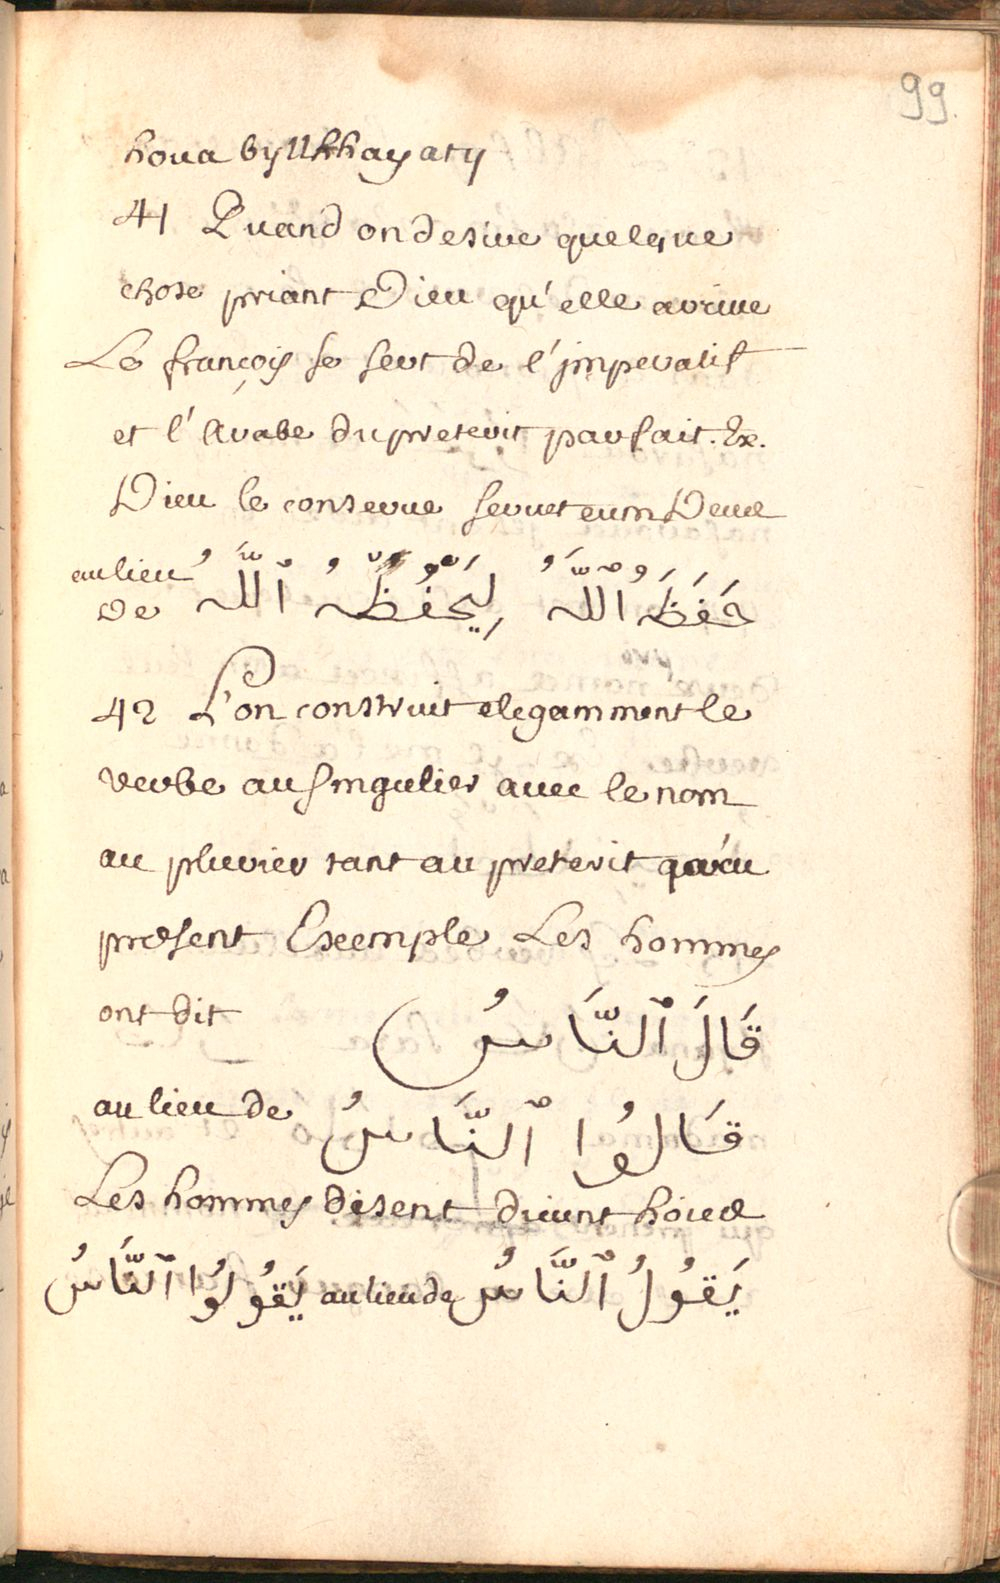 99.
houa byllkhayaty
41 Quand on desire quelque
chose priant Dieu qu'elle arriue
Le françois se sert de l'jmperatif
et l'Arabe du preterit parfait. Ex.
Dieu le conserue seruet eum Deus
حَفَظَهُ ٱللَّهُ لِيَحْفُظْهُ ٱللَّهُ au lieu de
42 L'on construit elegamment le
verbe au singulier auec le nom
au plurier tant au preterit qu'au
present Exemple Les hommes
ont dit قَالَ ٱلنَّاسُ
au lieu de قَالُوا ٱلنَّاسُ
Les hommes disent
يَقُولُ ٱلنَّاسُ au lieu de يَقُولُوا ٱلنَّاسُ